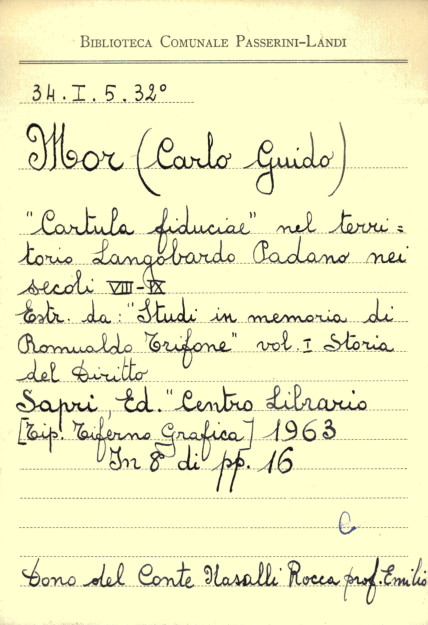 BIBLIOTECA COMUNALE PASSERINI-LANDI
34. I. 5. 32°
Mor (Carlo Guido)
"Cartula fiduciae" nel terri=
torio Langobardo Padano nei
secoli VIII-IX
Estr. da: "Studi in memoria di
Romualdo Trifone" vol. I Storia
del Diritto
Sapri, Ed. "Centro Librario
[Tip. Tiferno Grafica] 1963
In 8° di pp. 16
C
Dono del Conte Nasalli Rocca prof. Emilio